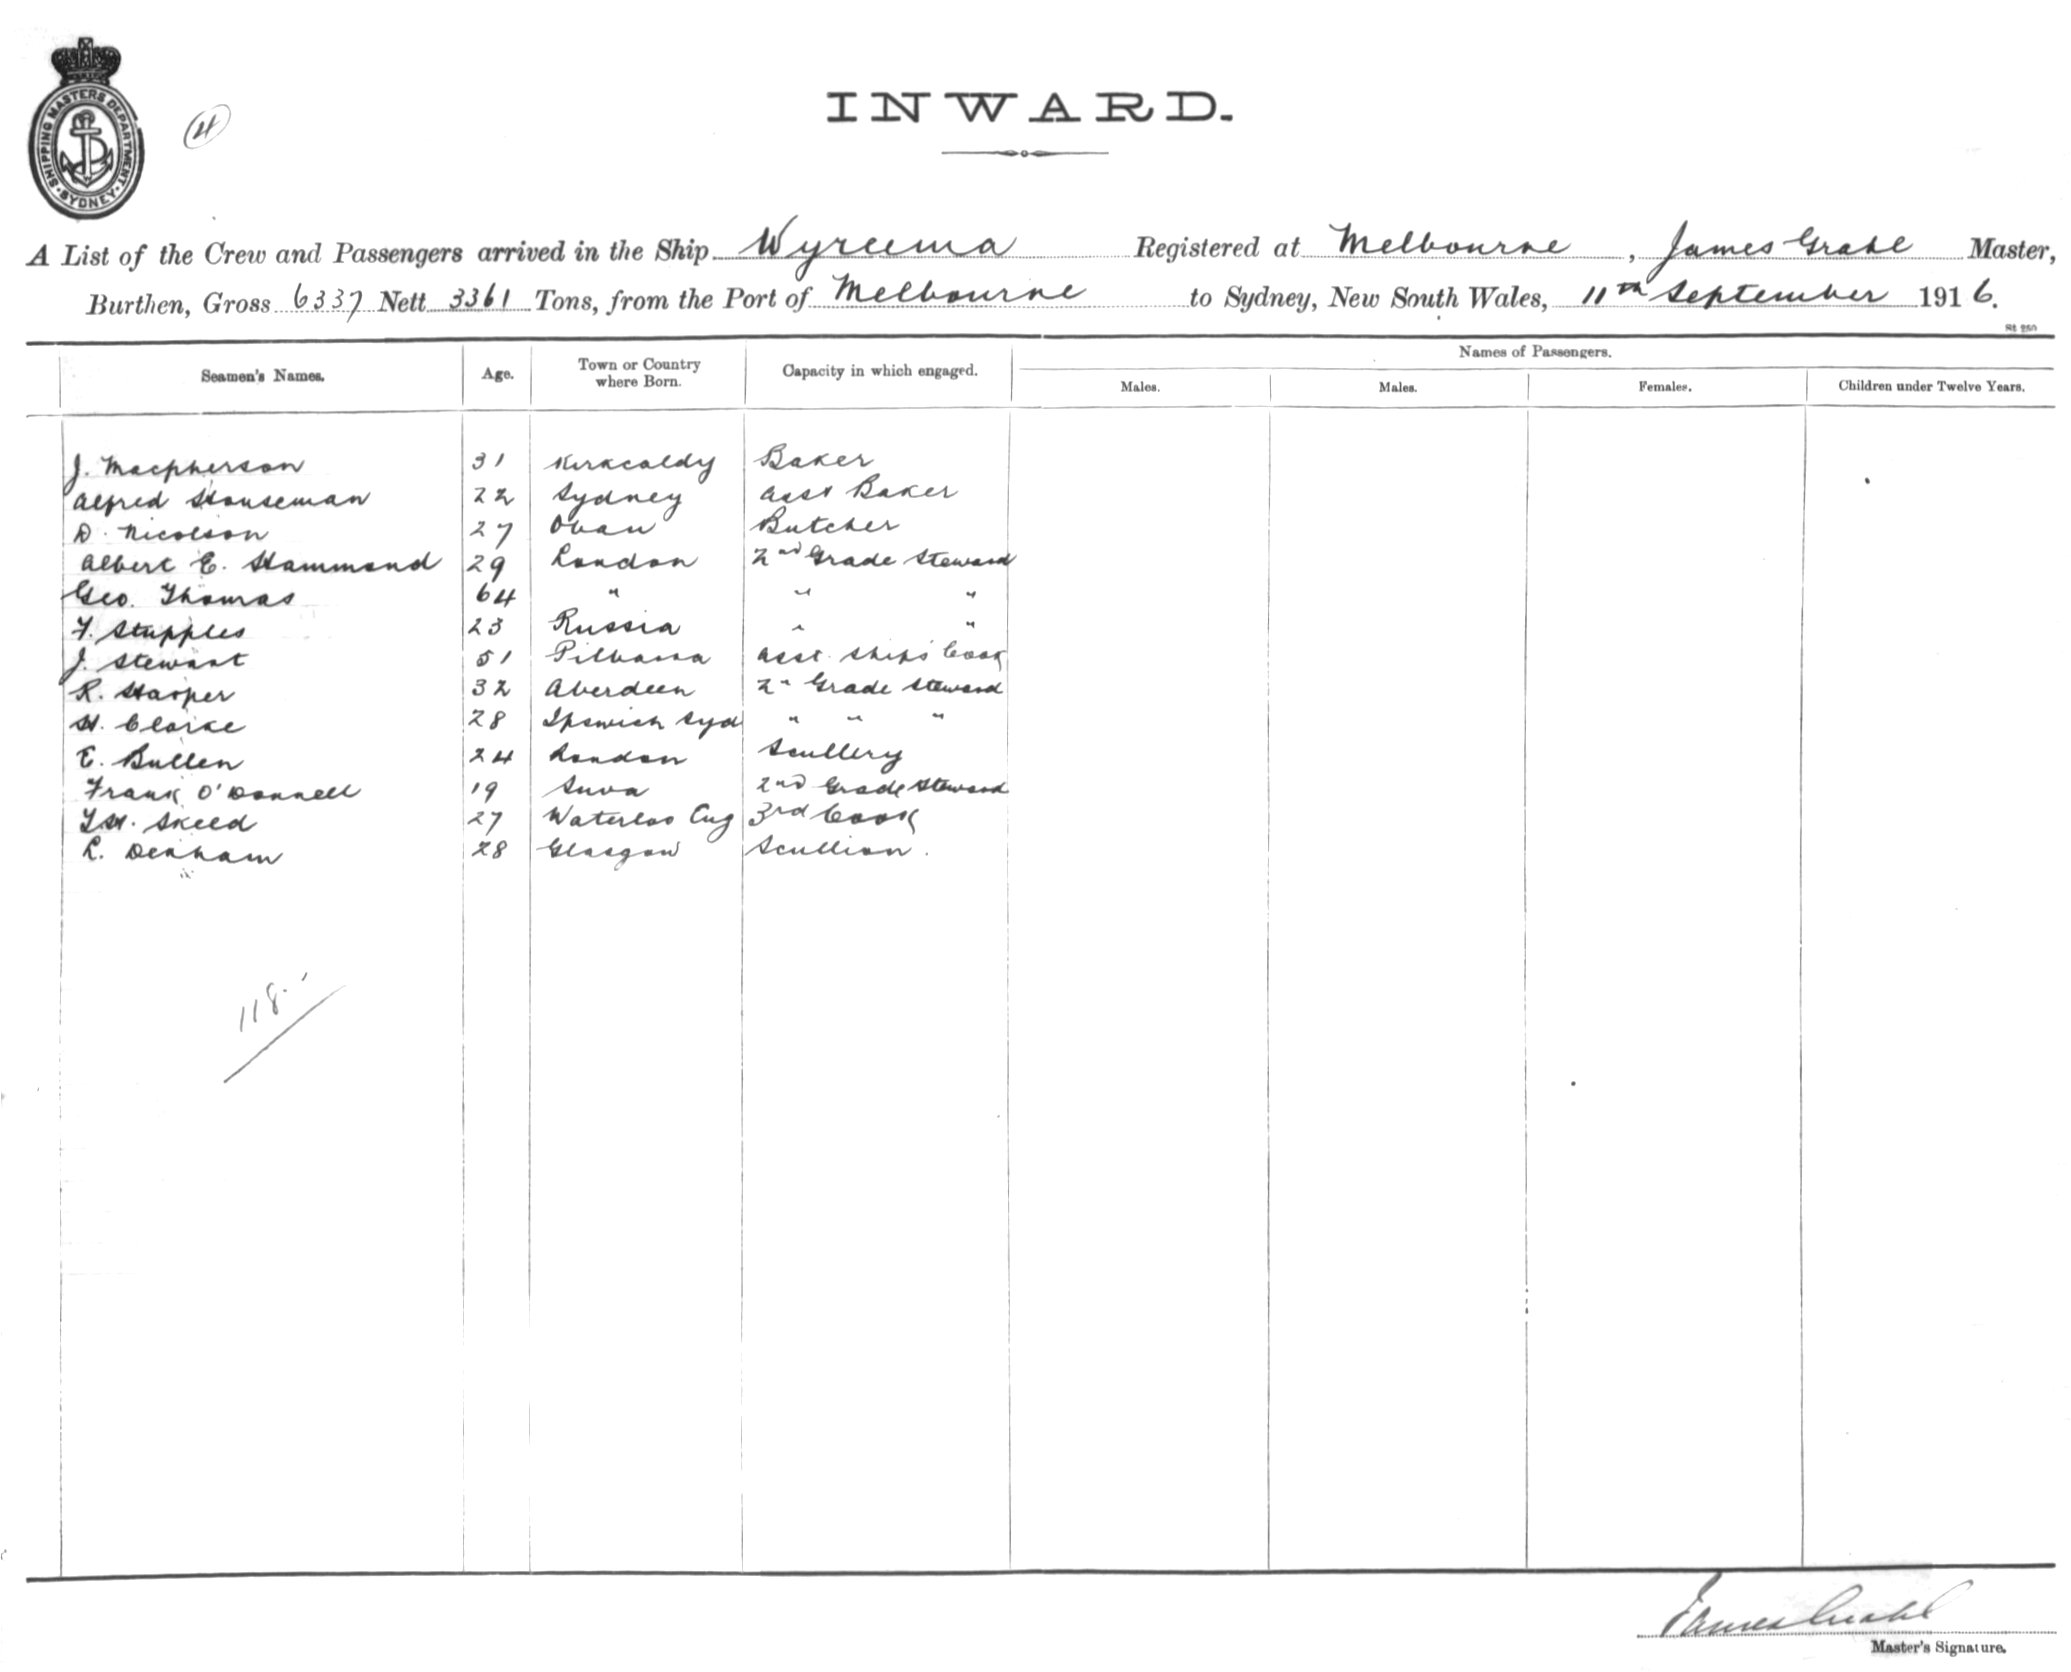 SHIPPING MASTERS DEPARTMENT
SYDNEY
4
INWARD.
A List of the Crew and Passengers arrived in the Ship Wyreema Registered at Melbourne, James Grahl Master,
Burthen, Gross 6337 Nett 3361 Tons, from the Port of Melbourne to Sydney, New South Wales, 11th September 1916.
Seamen's Names. Age. Town or Country where Born. Capacity in which engaged. Names of Passengers.
Males. Males. Females. Children under Twelve Years.
J. Macpherson 31 Kirkcaldy Baker
Alfred Houseman 22 Sydney Asst Baker
D. Nicolson 27 Oban Butcher
Albert E. Hammond 29 London 2nd Grade Steward
Geo. Thomas 64 " " "
F. Stupples 23 Russia " "
J. Stewart 51 Pilbarra Asst. Ships Cook
R. Harper 32 Aberdeen 2nd Grade Steward
H. Clarke 28 Ipswich Syd " " "
E. Bullen 24 London Scullery
Frank O'Donnell 19 Suva 2nd Grade Steward
Skeed 27 Waterloo Eng 3rd Cook
L. Denham 28 Glasgow Scullion.
118.
James Grahl
Master's Signature.